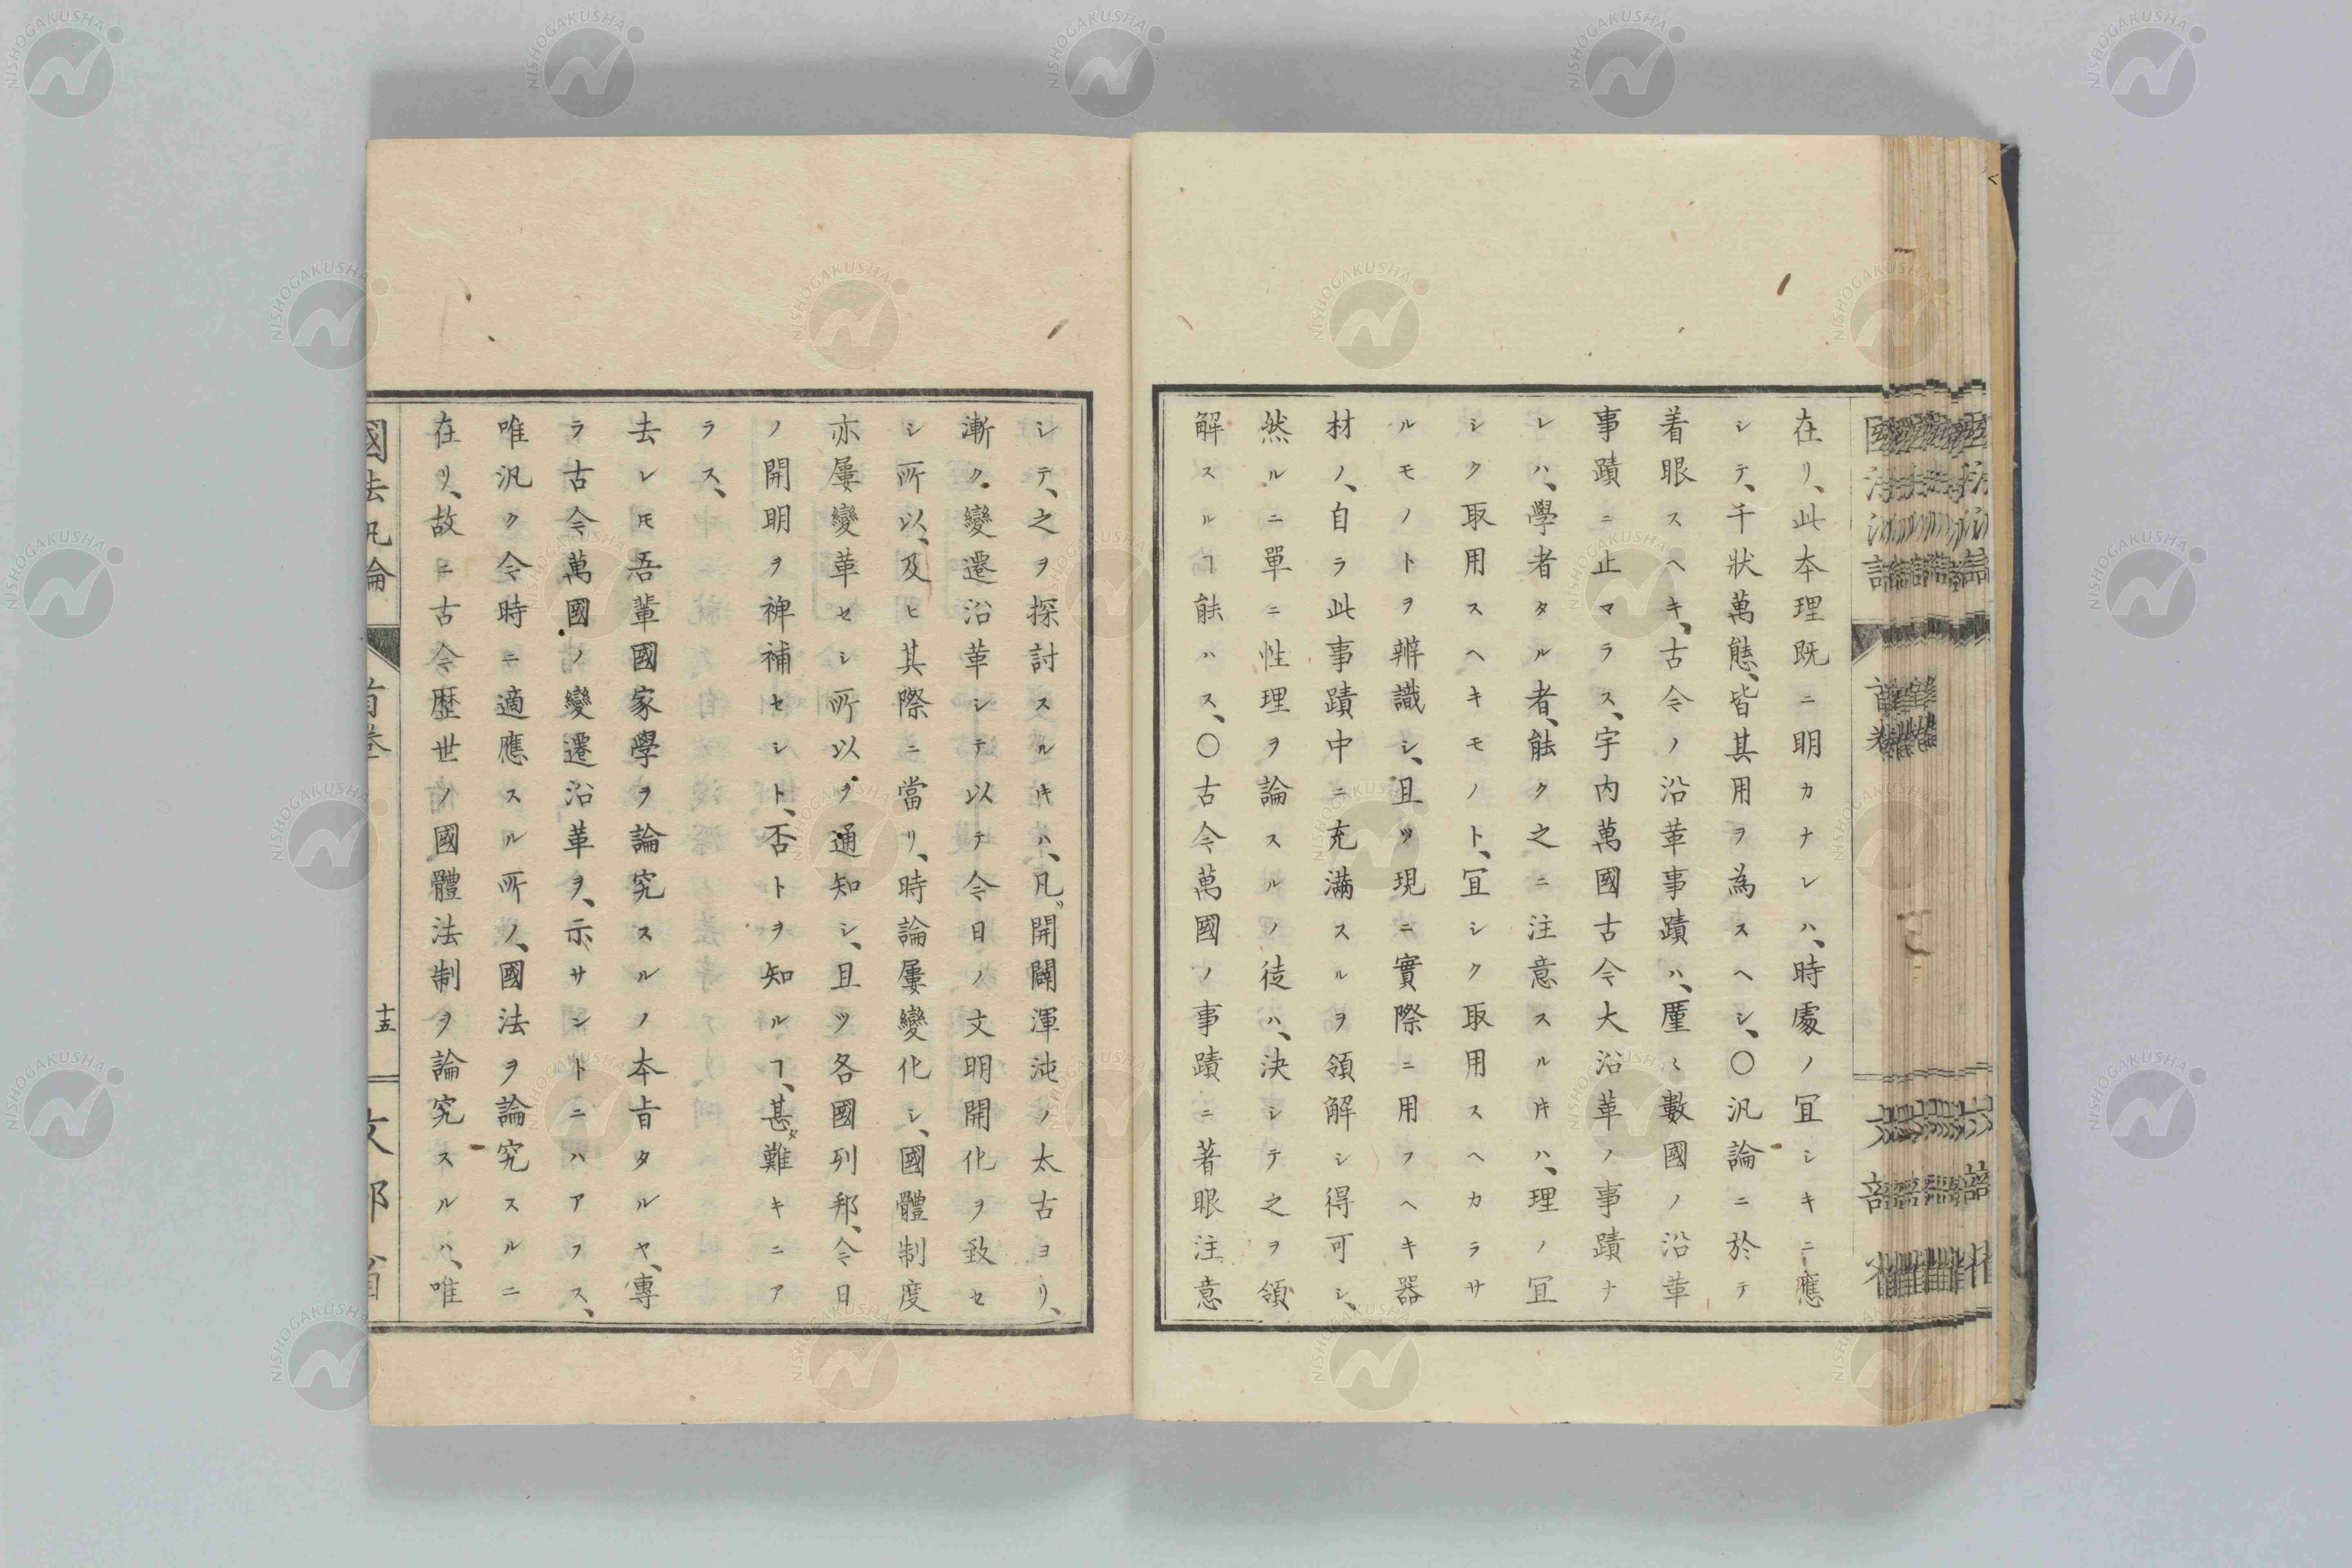 在リ、此本理既ニ明カナレハ、時處ノ宜シキニ應
シテ、千狀萬態、皆其用ヲ為スヘシ、〇汎論ニ於テ
着眼スヘキ、古今ノ沿革事蹟ハ、厪〻數國ノ沿革
事蹟ニ止マラス、宇内萬國古今大沿革ノ事蹟ナ
レハ、學者タル者、能ク之ニ注意スル片ハ、理ノ宜
シク取用スヘキモノト、宜シク取用スヘカラサ
ルモノトヲ辨識シ、且ツ現ニ實際ニ用フヘキ器
材ノ、自ラ此事蹟中ニ充滿スルヲ領解シ得可シ、
然ルニ單ニ性理ヲ論スルノ徒ハ、決シテ之ヲ領
解スルヿ能ハス、〇古今萬國ノ事蹟ニ著眼注意
シテ、之ヲ探討スル片ハ、凡ソ開闢渾沌ノ太古ヨリ、
漸ク變遷沿革シテ以テ今日ノ文明開化ヲ致セ
シ所以、及ヒ其際ニ當リ、時論屢變化シ、國體制度
亦屢變革セシ所以ヲ通知シ、且ツ各國列邦、今日
ノ開明ヲ裨補セシト、否トヲ知ルヿ、甚タ難キニア
ラス、
去レ𪜈吾輩國家學ヲ論究スルノ本旨タルヤ、專
ラ古今萬國ノ變遷沿革ヲ、示サントニハアフス、
唯汎ク今時ニ適應スル所ノ、國法ヲ論究スルニ
在リ、故ニ古今歷世ノ國體法制ヲ論究スルハ、唯
國法汎論 首卷 十五 文部省